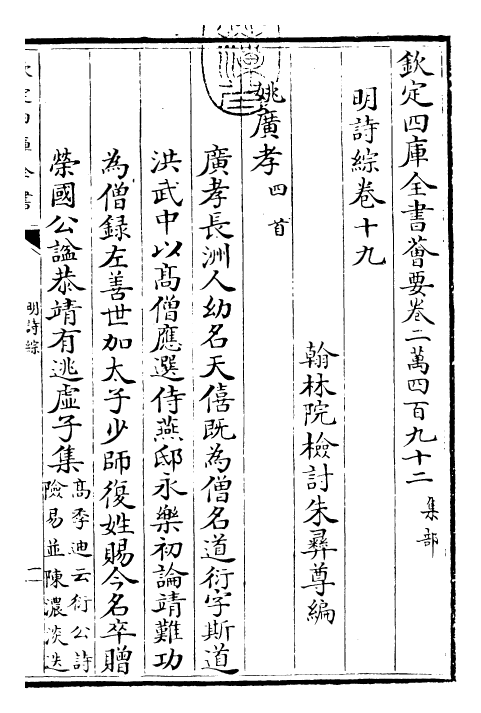 欽定四庫全書薈要卷二萬四百九十二 集部
明詩綜卷十九
翰林院檢討朱彞尊編
姚廣孝四首
廣孝長洲人幼名天僖既為僧名道衍字斯道
洪武中以髙僧應選侍燕邸永樂初論靖難功
為僧録左善世加太子少師復姓賜今名卒贈
榮國公諡恭靖有逃虛子集
髙季迪云衍公詩
險易並陳濃淡迭
欽定四庫全書
明詩綜